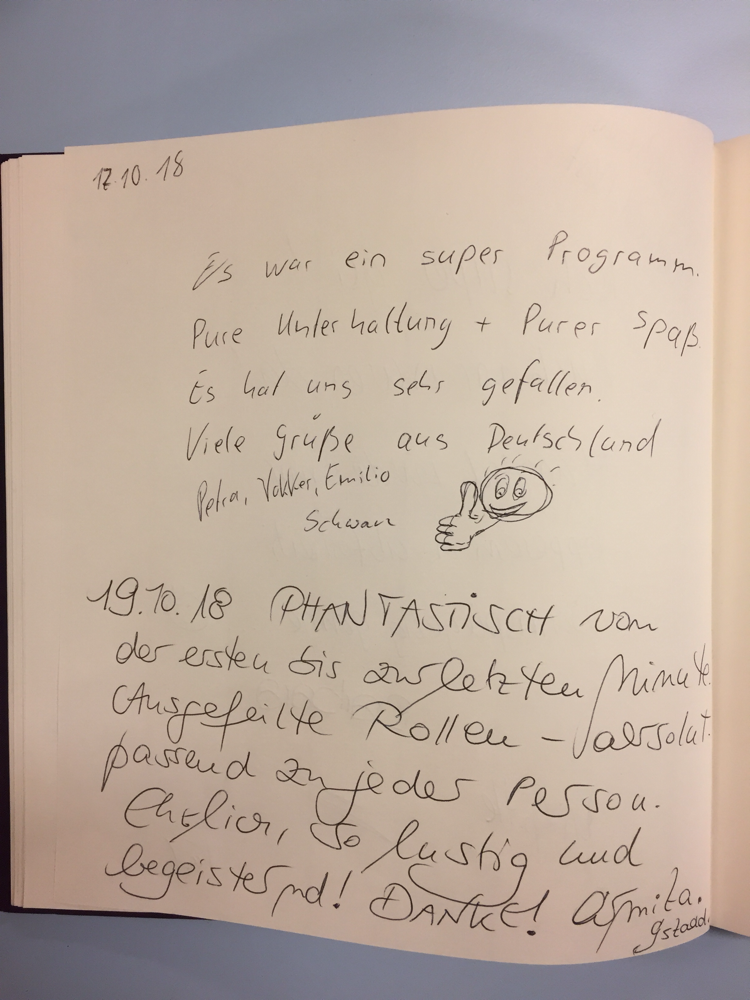 17.10.18
Es war ein super Programm.
Pure Unterhaltung + Purer Spaß.
Es hat uns sehr gefallen.
Viele Grüße aus Deutschland
Petra, Volker, Emilio
Schwarz
19.10.18 PHANTASTISCH von
der ersten bis zur letzten Minute.
Ausgefeilte Rollen – absolut
passend zu jeder Person.
Ehrlich, so lustig und
begeisternd! DANKE! Asmita.
gstaad.